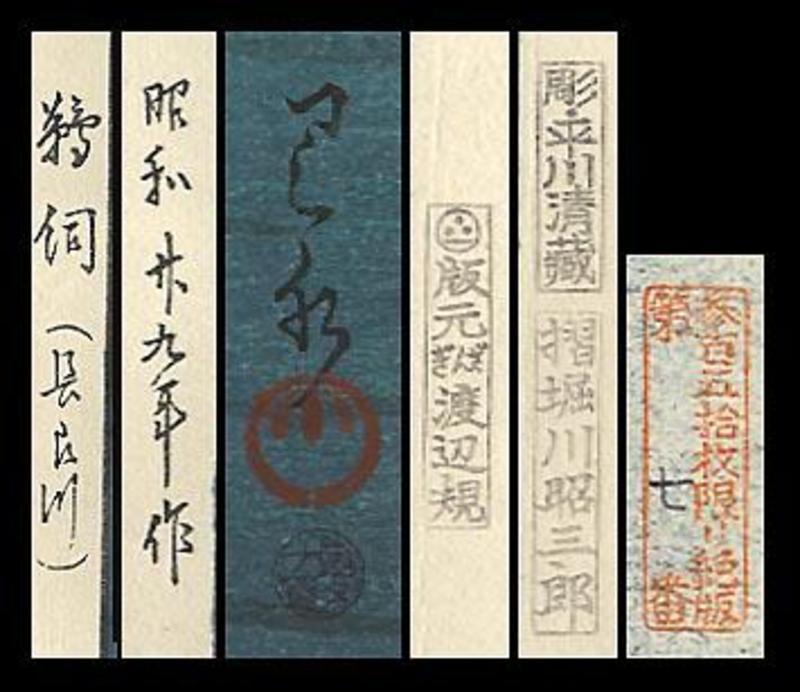 鵜飼(長良川)
昭和廿九年作
巴水
版元ぎんざ渡辺規
彫・平川清蔵
摺堀川昭三郎
参百五拾枚限り絶版
第七番